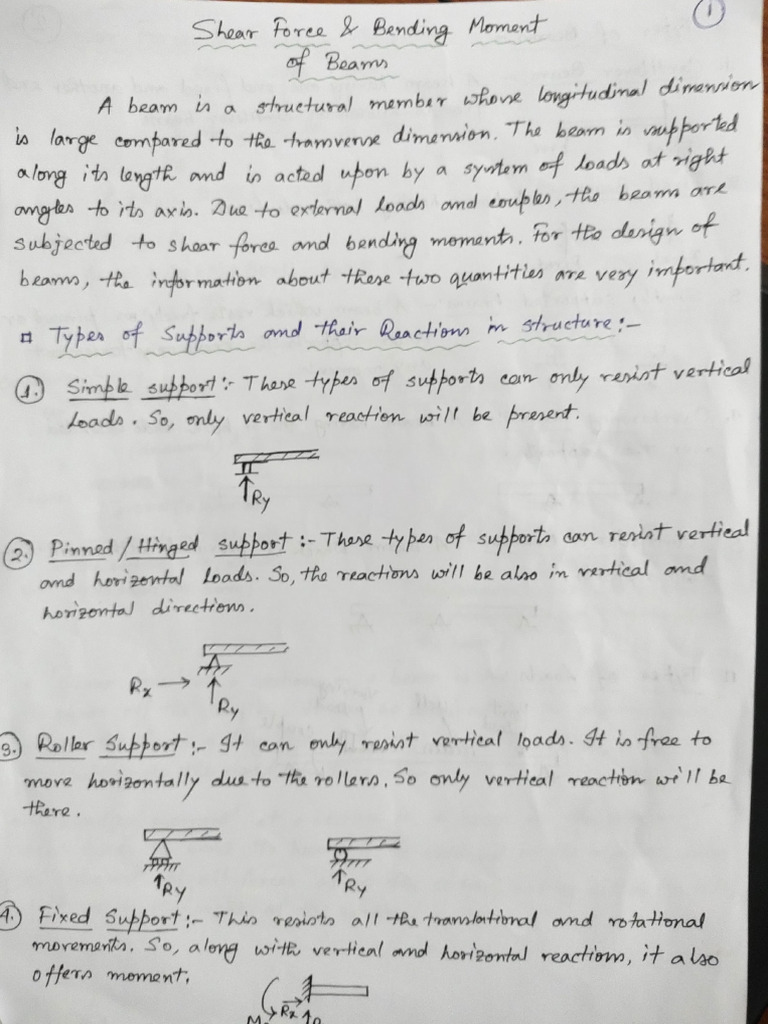 1
Shear Force & Bending Moment
of Beams
A beam is a structural member whose longitudinal dimension
is large compared to the transverse dimension. The beam is supported
along its length and is acted upon by a system of loads at right
angles to its axis. Due to external loads and couples, the beam are
subjected to shear force and bending moments. For the design of
beams, the information about these two quantities are very important.
Types of Supports and their Reactions in structure:-
1. Simple support:- These types of supports can only resist vertical
Loads. So, only vertical reaction will be present.
Ry
2. Pinned / Hinged support:- These types of supports can resist vertical
and horizontal Loads. So, the reactions will be also in vertical and
horizontal directions.
Rx
Ry
3. Roller Support:- It can only resist vertical loads. It is free to
move horizontally due to the rollers. So only vertical reaction will be
there.
Ry Ry
4. Fixed Support:- This resists all the translational and rotational
movements. So, along with vertical and horizontal reactions, it also
offers moment.
Rx